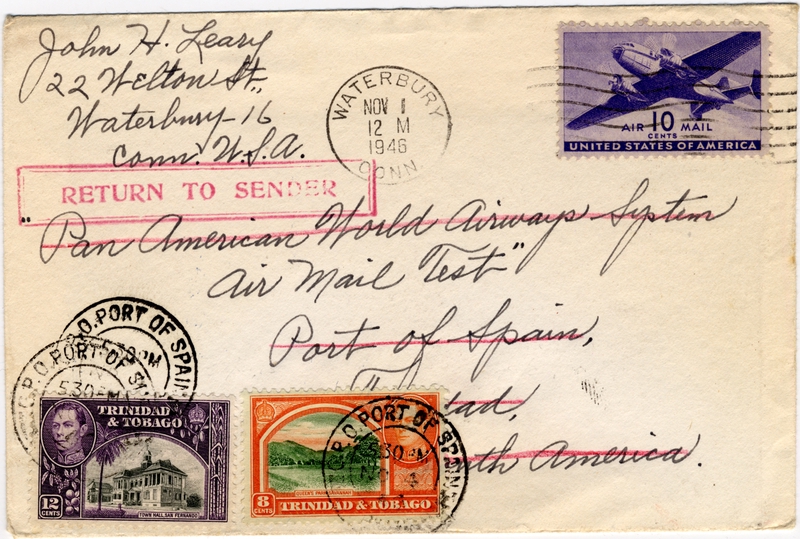 John H. Leary
22 Welton St.,
Waterbury-16
Conn. U.S.A.
WATERBURY
NOV 1
12 M
1946
CONN
AIR 10 MAIL
CENTS
UNITED STATES OF AMERICA
RETURN TO SENDER
"Pan American World Airways System
Air Mail Test"
Port of Spain,
tad,
uth America.
G.P.O. PORT OF SPAIN
5.30PM
G.P.O. PORT OF
5.30PM
TRINIDAD
& TOBAGO
12
CENTS
TOWN HALL, SAN FERNANDO
G.P.O. PORT OF SPAIN
5.30PM
8
CENTS
TRINIDAD & TOBAGO